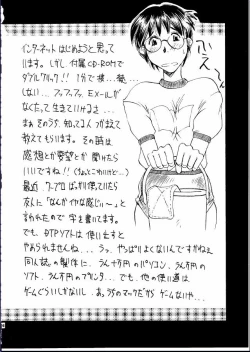 インターネットはじめようと思って
います。しかし、付属CD-ROMで
ダブルクリック!! 1分で接…続…
しない… フフフフフ、EX-ILが
なくたって生きていけるさ…
まあ そのうち、知ってる人つかまえて
教えてもらいます。その時は
感想とか要望とか聞けたら
いいですね!!
最近、ワープロばっかり使っていたら
友人に「なんかイヤな感じぃ〜」と
言われたので 字を書いてます。
でも、DTPソフトは使い出すと
やめられませんね…。う。やっぱりよくないんですかねぇ
同人誌の製作に、うん十万円のパソコン、うん万円の
ソフト、うん万円のプリンタ…でも、他の使い道は
ゲームぐらいしかないし。あ、うちのマックだから ゲームないや…。
ふえ〜